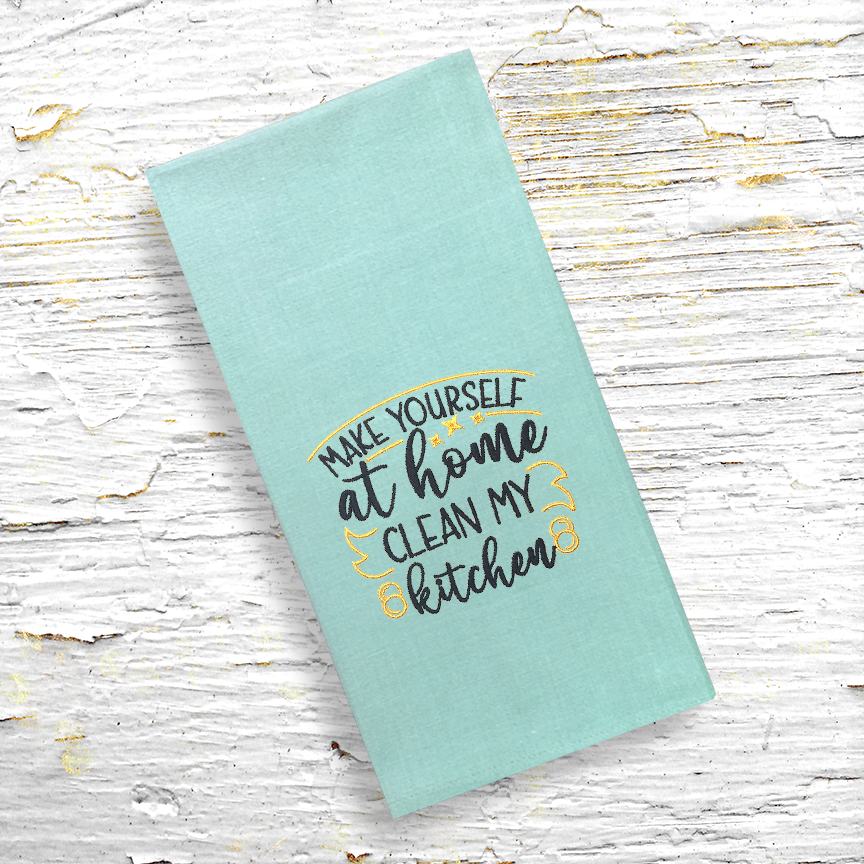 MAKE YOURSELF
at home
CLEAN MY
kitchen